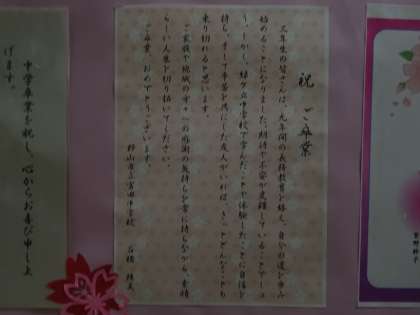 祝 ご卒業
三年生の皆さんは、九年間の義務教育を終え、自分の道を歩み
始めることになりました。期待や不安が交錯していることでしょ
う。しかし、緑ケ丘中学校で学んだことや体験したことに自信を
持ち、そして辛苦を共にした友人がいれば、きっとどんなことも
乗り切れると思います。
ご家族や地域の方々への感謝の気持ちを常に持ちながら、素晴
らしい人生を切り拓いてください。
ご卒業、おめでとうございます。
郡山市立富田中学校
石橋
中学卒業を祝し、心からお喜び申し上
げます。